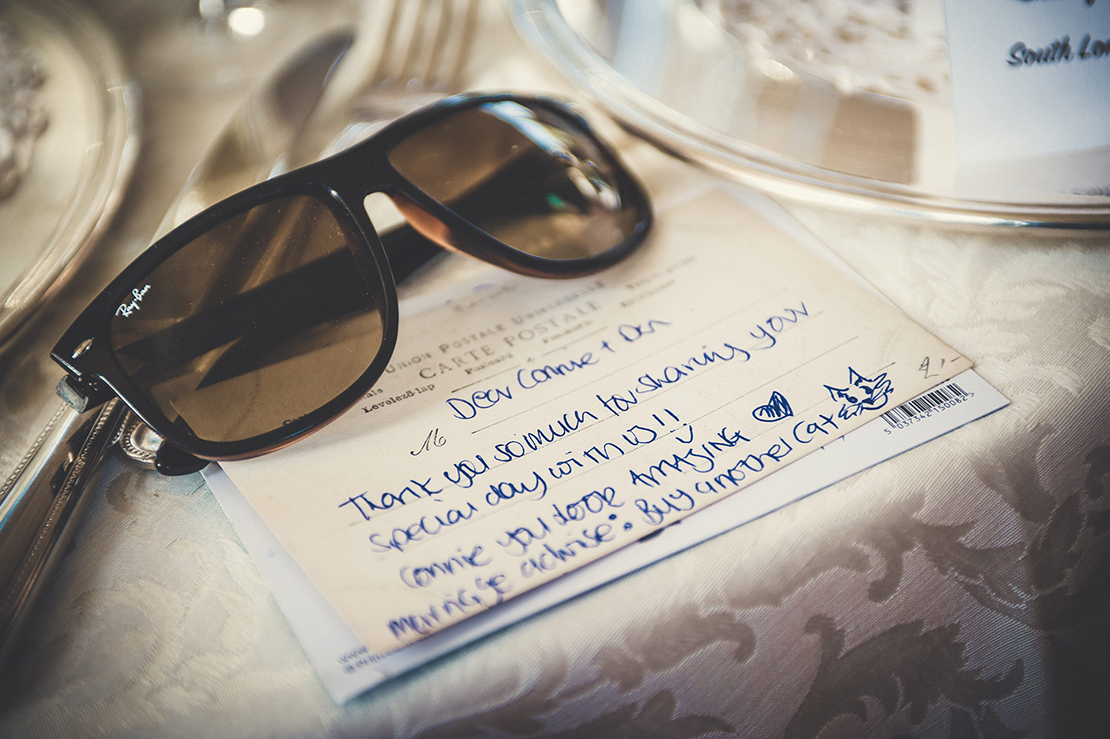 South Lon
Ray-Ban
UNION POSTALE UNIVERSELLE
CARTE POSTALE
Levelező-lap
Dear Connie + Dan
M
Thank you so much for sharing your
special day with us!!
Connie you look AMAZING
marriage advise: Buy another cat
5 037342 150082
www.